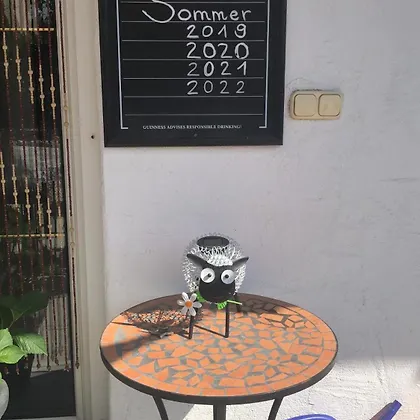 Sommer
2019
2020
2021
2022
GUINNESS ADVISES RESPONSIBLE DRINKING!